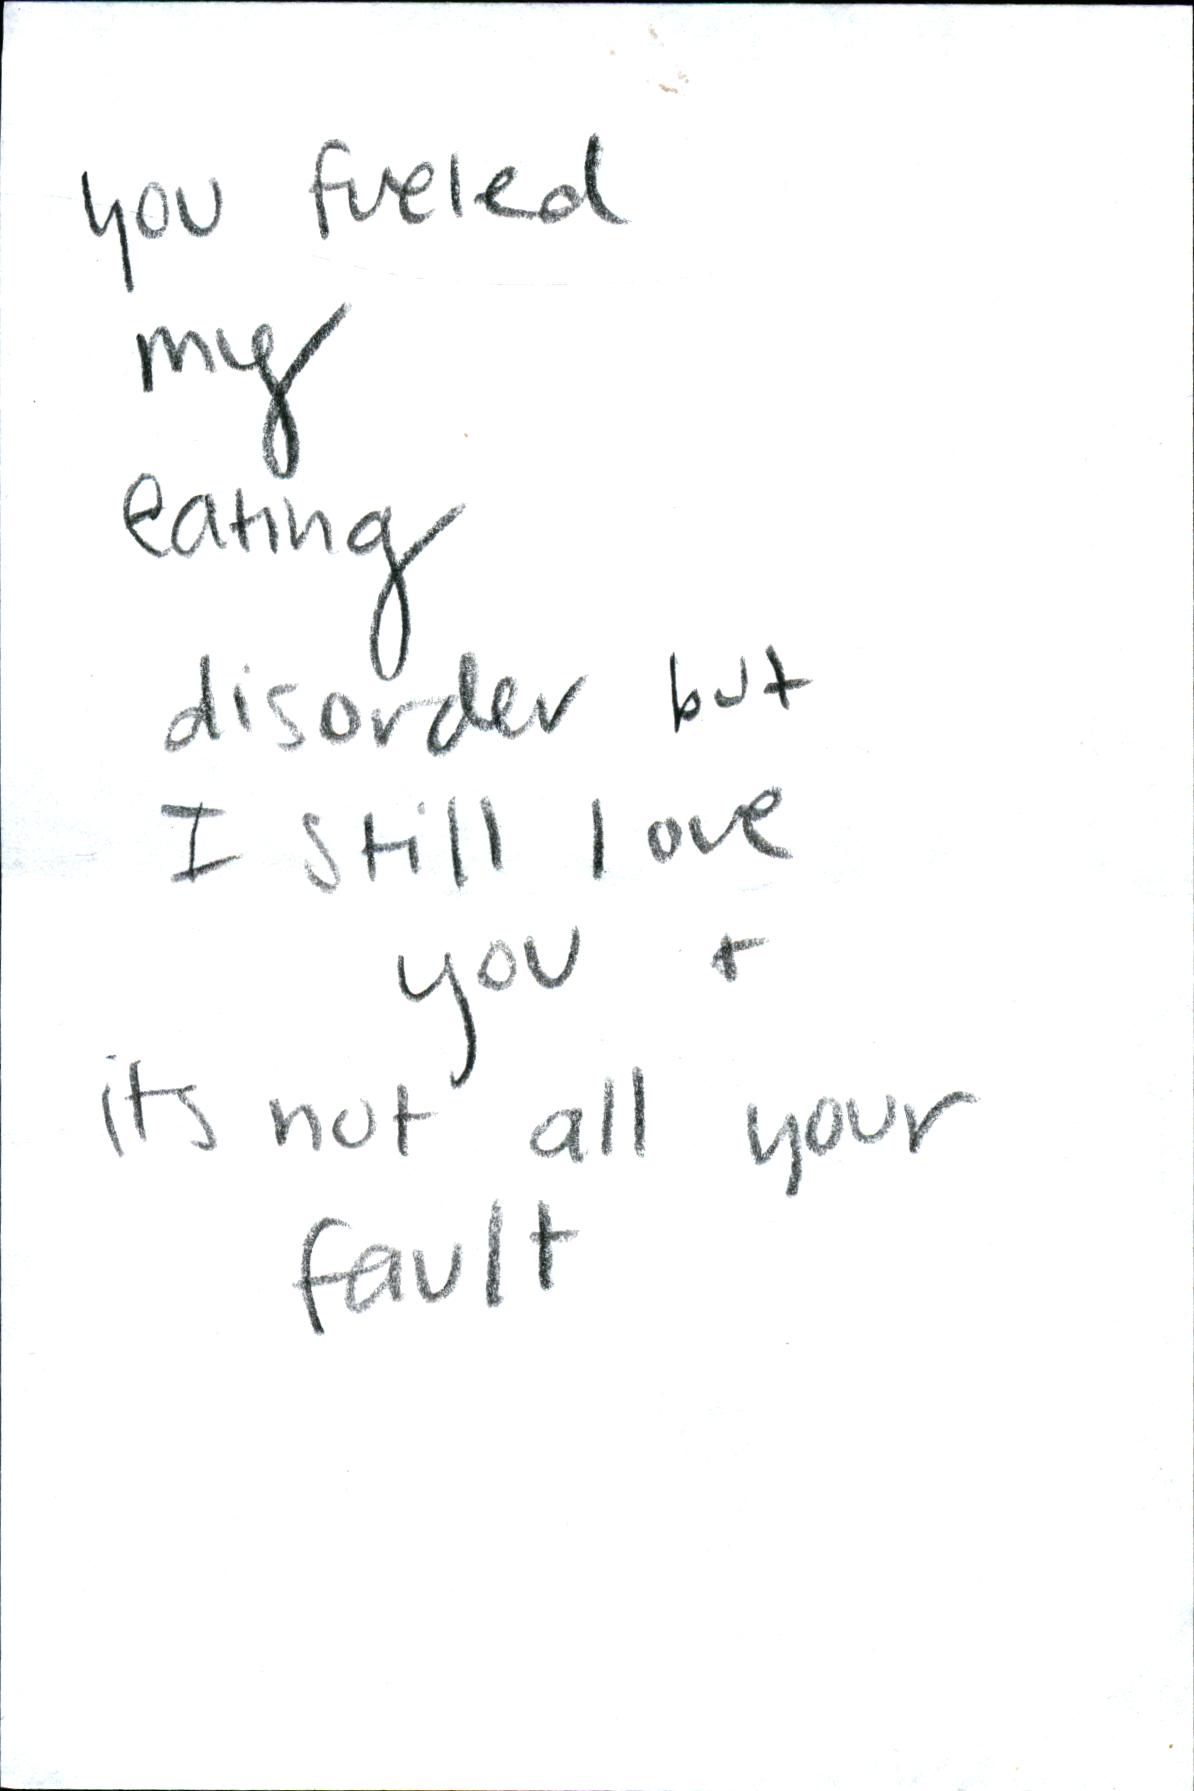 you fueled
my
eating
disorder but
I still love
you +
its not all your
fault